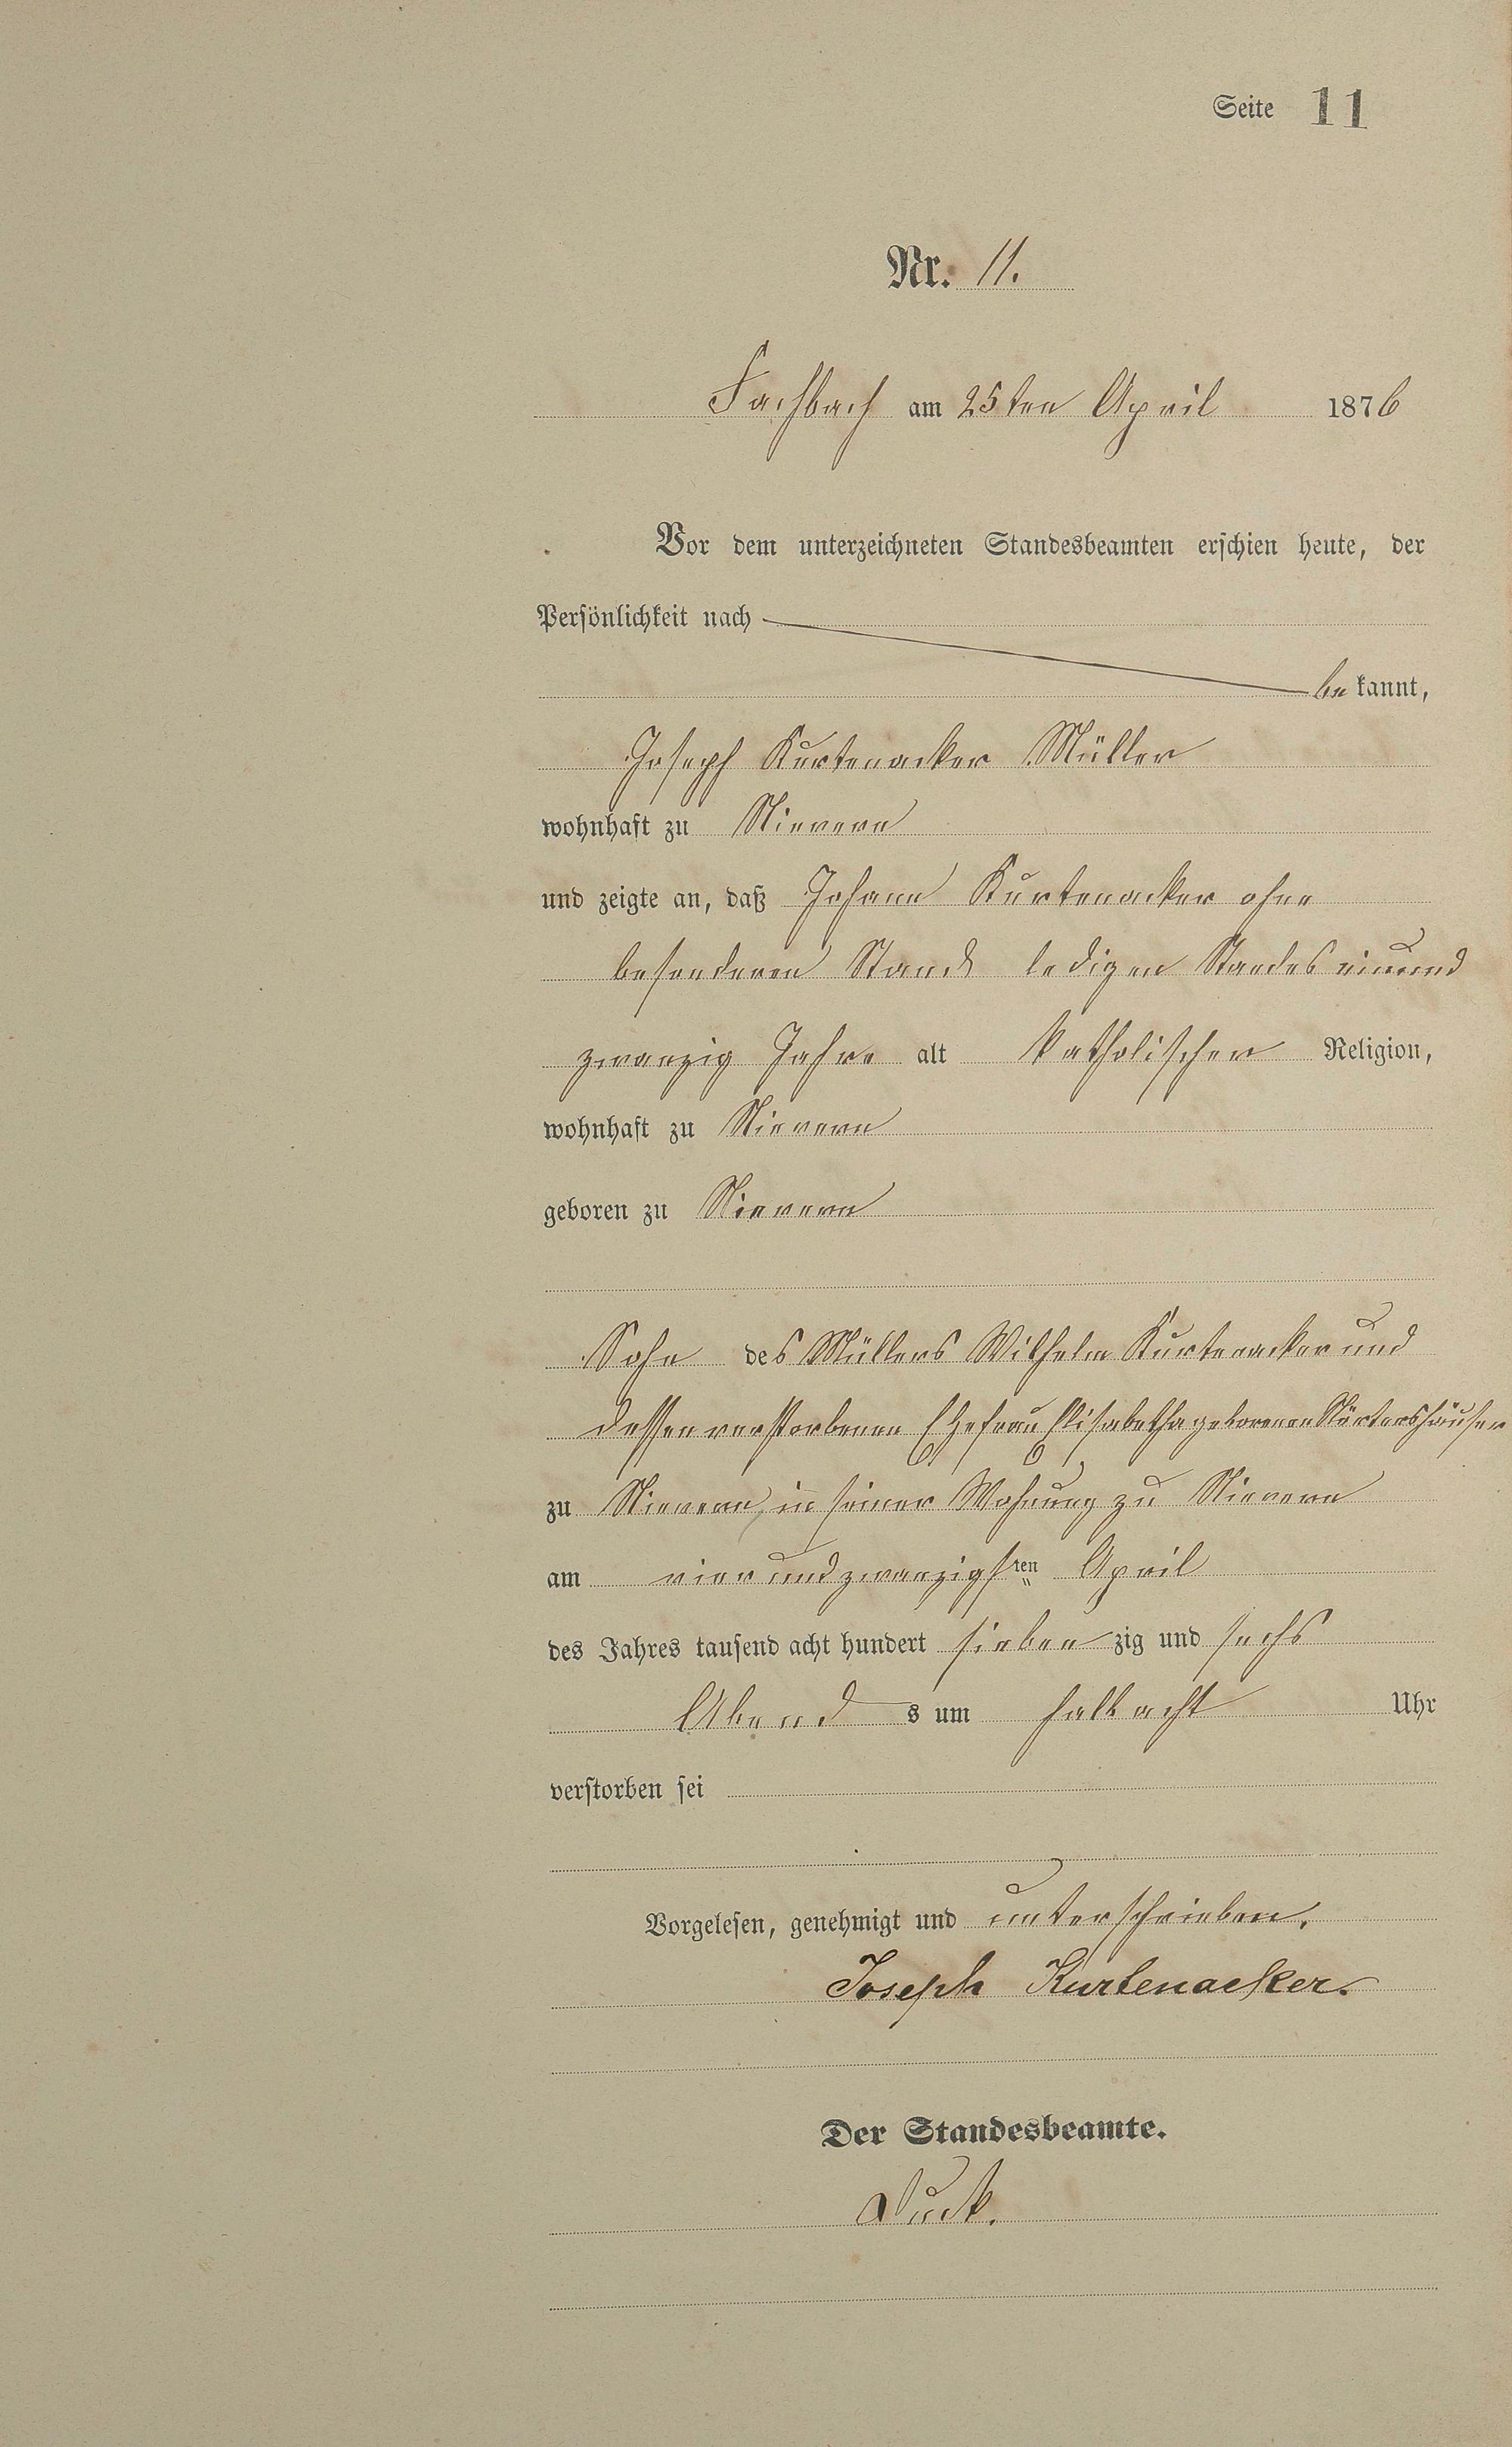 Seite 11
Nr. 11.
Fachbach am 25ten April 1876
Vor dem unterzeichneten Standesbeamten erschien heute, der
Persönlichkeit nach
be kannt,
Joseph Kurtenacker Müller
wohnhaft zu Nievern
und zeigte an, daß Johann Kurtenacker ohne
besonderen Stand ledigen Standes einund
zwanzig Jahre alt katholischer Religion,
wohnhaft zu Nievern
geboren zu Nievern
Sohn des Müllers Wilhelm Kurtenacker und
dessen verstorbenen Ehefrau Elisabetha geborenen
zu Nievern, in seiner Wohnung zu Nievern
am vier und zwanzigsten April
des Jahres tausend acht hundert sieben zig und sechs
Abend s um halb acht Uhr
verstorben sei
Vorgelesen, genehmigt und unterschrieben.
Joseph Kurtenacker.
Der Standesbeamte.